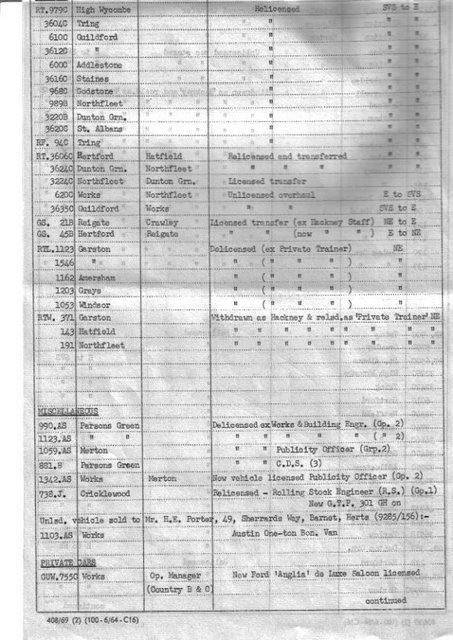 RT.979C High Wycombe Relicensed SVS to E
3604C Tring " " "
610C Guildford " " "
3612C " " " "
600C Addlestone " " "
3616C Staines " " "
968C Godstone " " "
989B Northfleet " " "
3220B Dunton Grn. " " "
3620C St. Albans " " "
RF. 94C Tring " " "
RT.3606C Hertford Hatfield Relicensed and transferred " "
3624C Dunton Grn. Northfleet " " " " "
3224C Northfleet Dunton Grn. Licensed transfer
620C Works Northfleet Unlicensed overhaul E to SVS
3635C Guildford Works " " SVS to E
GS. 21B Reigate Crawley Licensed transfer (ex Hackney Staff) NE to E
GS. 45B Hertford Reigate " " (now " ) E to NE
RTL.1123 Garston Delicensed (ex Private Trainer) NE
1546 " " ( " " ) "
1162 Amersham " ( " " ) "
1203 Grays " ( " " ) "
1053 Windsor " ( " " ) "
RTW. 371 Garston Withdrawn as Hackney & relsd.as 'Private Trainer' NE
143 Hatfield " " " " " " " "
191 Northfleet " " " " " " " "
MISCELLANEOUS
990.AS Parsons Green Delicensed ex Works & Building Engr. (Gp. 2)
1123.AS " " " " " " " ( " 2)
1059.AS Merton " " Publicity Officer (Grp.2)
881.B Parsons Green " " C.D.S. (3)
1342.AS Works Merton Now vehicle licensed Publicity Officer (Gp. 2)
738.J. Cricklewood Relicensed - Rolling Stock Engineer (R.S.) (Gp.1)
New G.T.P. 301 GH on
Unlsd. vehicle sold to Mr. H.E. Porter, 49, Sherrards Way, Barnet, Herts (9285/156):-
1103.AS Works Austin One-ton Bon. Van
PRIVATE CARS
GUW.755C Works Op. Manager New Ford 'Anglia' de Luxe Saloon licensed
(Country B & C)
continued
408/69 (2) (100-6/64-C16)